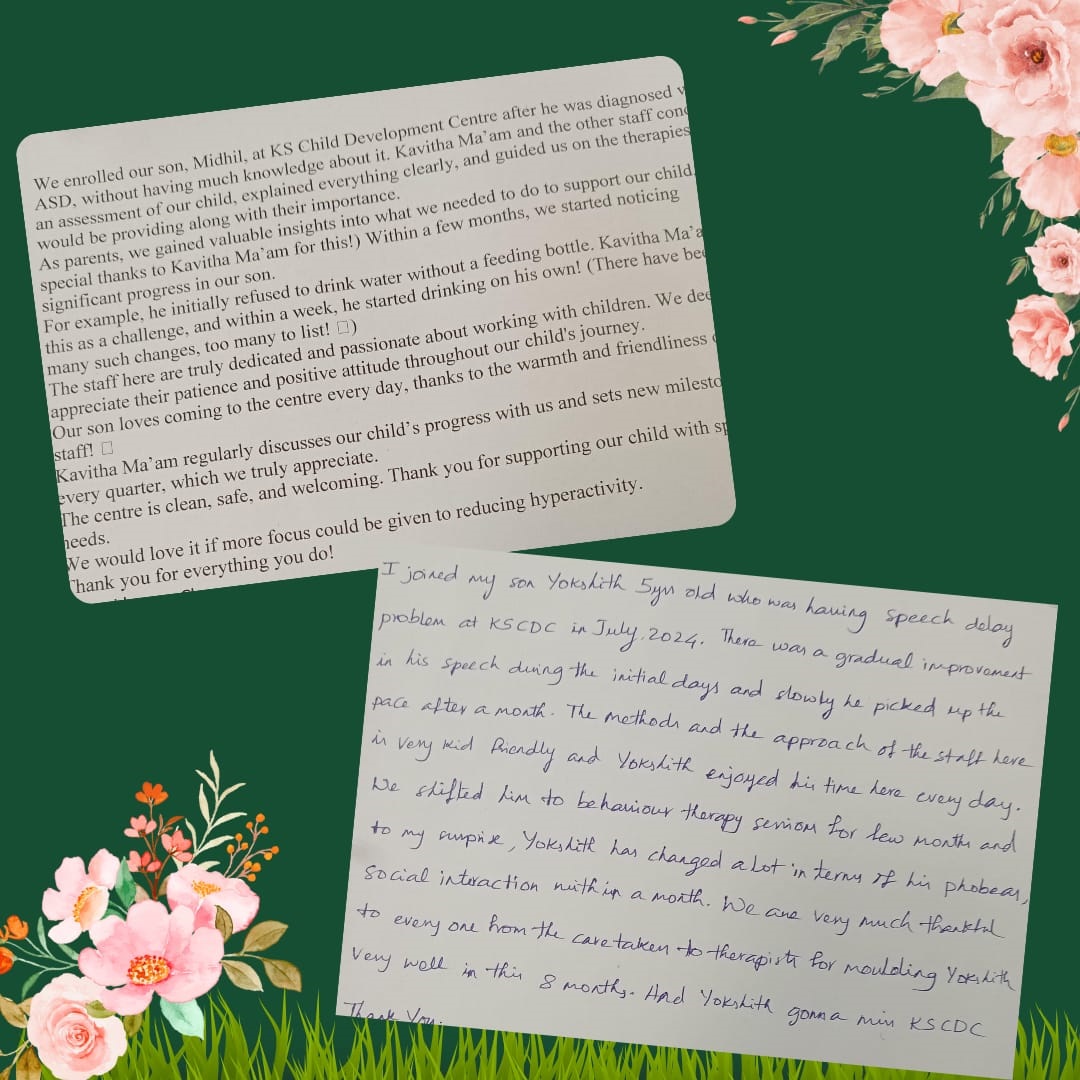 We enrolled our son, Midhil, at KS Child Development Centre after he was diagnosed
ASD, without having much knowledge about it. Kavitha Ma'am and the other staff
an assessment of our child, explained everything clearly, and guided us on the therapies
would be providing along with their importance.
As parents, we gained valuable insights into what we needed to do to support our child.
special thanks to Kavitha Ma'am for this!) Within a few months, we started noticing
significant progress in our son.
For example, he initially refused to drink water without a feeding bottle. Kavitha
this as a challenge, and within a week, he started drinking on his own! (There have
many such changes, too many to list! )
The staff here are truly dedicated and passionate about working with children. We
appreciate their patience and positive attitude throughout our child's journey.
Our son loves coming to the centre every day, thanks to the warmth and friendliness
staff!
Kavitha Ma'am regularly discusses our child's progress with us and sets new
every quarter, which we truly appreciate.
The centre is clean, safe, and welcoming. Thank you for supporting our child with
needs.
We would love it if more focus could be given to reducing hyperactivity.
Thank you for everything you do!
I joined my son Yokshith 5yrs old who was having speech delay
problem at KSCDC in July, 2024. There was a gradual improvement
in his speech during the initial days and slowly he picked up the
pace after a month. The methods and the approach of the staff here
is very kid friendly and Yokshith enjoyed his time here every day.
We shifted him to behaviour therapy sessions for few months and
to my surprise, Yokshith has changed a lot in terms of his phobeas,
social interaction within a month. We are very much thankful
to every one from the caretaken to therapists for moulding Yokshith
very well in this 8 months. And Yokshith gonna miss KSCDC
Thank You.